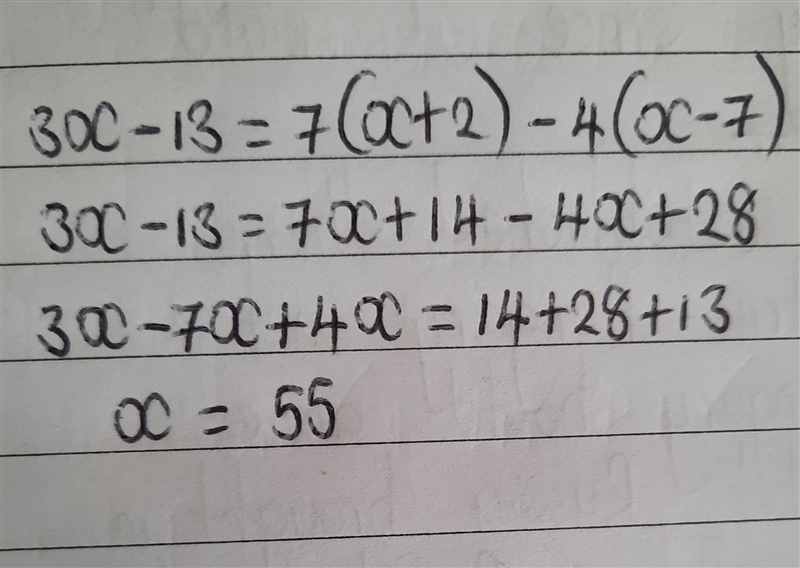 3x - 13 = 7(x+2) - 4(x-7)
3x - 13 = 7x + 14 - 4x + 28
3x - 7x + 4x = 14 + 28 + 13
x = 55